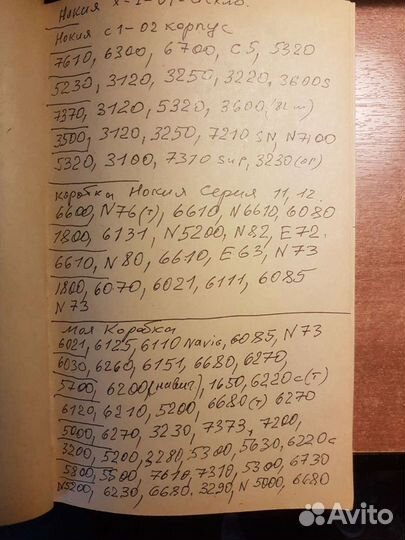 Нокия х-1-01-стекло.
Нокия с1-02 корпус
7610, 6300, 6700, С5, 5320
5230, 3120, 3250, 3220, 3600s
7370, 3120, 5320, 3600
3500, 3120, 3250, 7210 SN, N7100
5320, 3100, 7310 sup, 3230(ор)
коробка Нокия Серия 11, 12.
6600, N76(т), 6610, N6610, 6080
1800, 6131, N5200, N82, E72.
6610, N80, 6610, E63, N73
1800, 6070, 6021, 6111, 6085
N73
Моя Коробка
6021, 6125, 6110 Navig, 6085, N73
6030, 6260, 6151, 6680, 6270,
5700, 6200(навиг), 1650, 6220с(т)
6120, 6210, 5200, 6680(т) 6270
5000, 6270, 3230, 7373, 7200,
3200, 5200, 3280, 5300, 5630, 6220с
5800, 5500, 7610, 7310, 5300, 6730
N5200, 6230, 6680. 3290, N5000, 6680
Avito